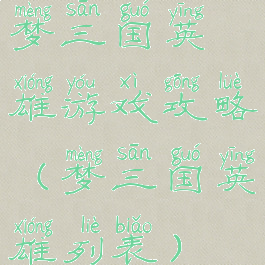 mèng sān guó yīng
梦三国英
xióng yóu xì gōng lüè
雄游戏攻略
mèng sān guó yīng
（梦三国英
xióng liè biǎo
雄列表）